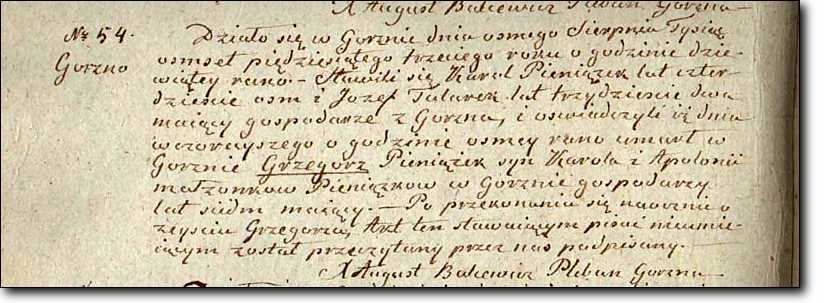 X August Bakiewicz Pleban Gorzna
№ 54.
Gorzno
Działo się w Gorznie dnia osmego Sierpnia Tysiąc
osmset pięćdziesiątego trzeciego roku o godzinie dzie-
wiątey rano – Stawili się Karol Pieniązek lat czter-
dzieście osm i Jozef Talarek lat trzydzieście dwa
maiący gospodarze z Gorzna, i oswiadczyli iż dnia
wczorayszego o godzinie osmey rano umarł w
Gorznie Grzegorz Pieniązek syn Karola i Apolonii
małzonkow Pieniązkow w Gorznie gospodarzy
lat siedm maiący. – Po przekonaniu się naocznie o
zeysciu Grzegorza, Akt ten stawaiącym pisać nieumie-
iącym został przeczytany przez nas podpisany. –
X August Bakiewicz Pleban Gorzna –